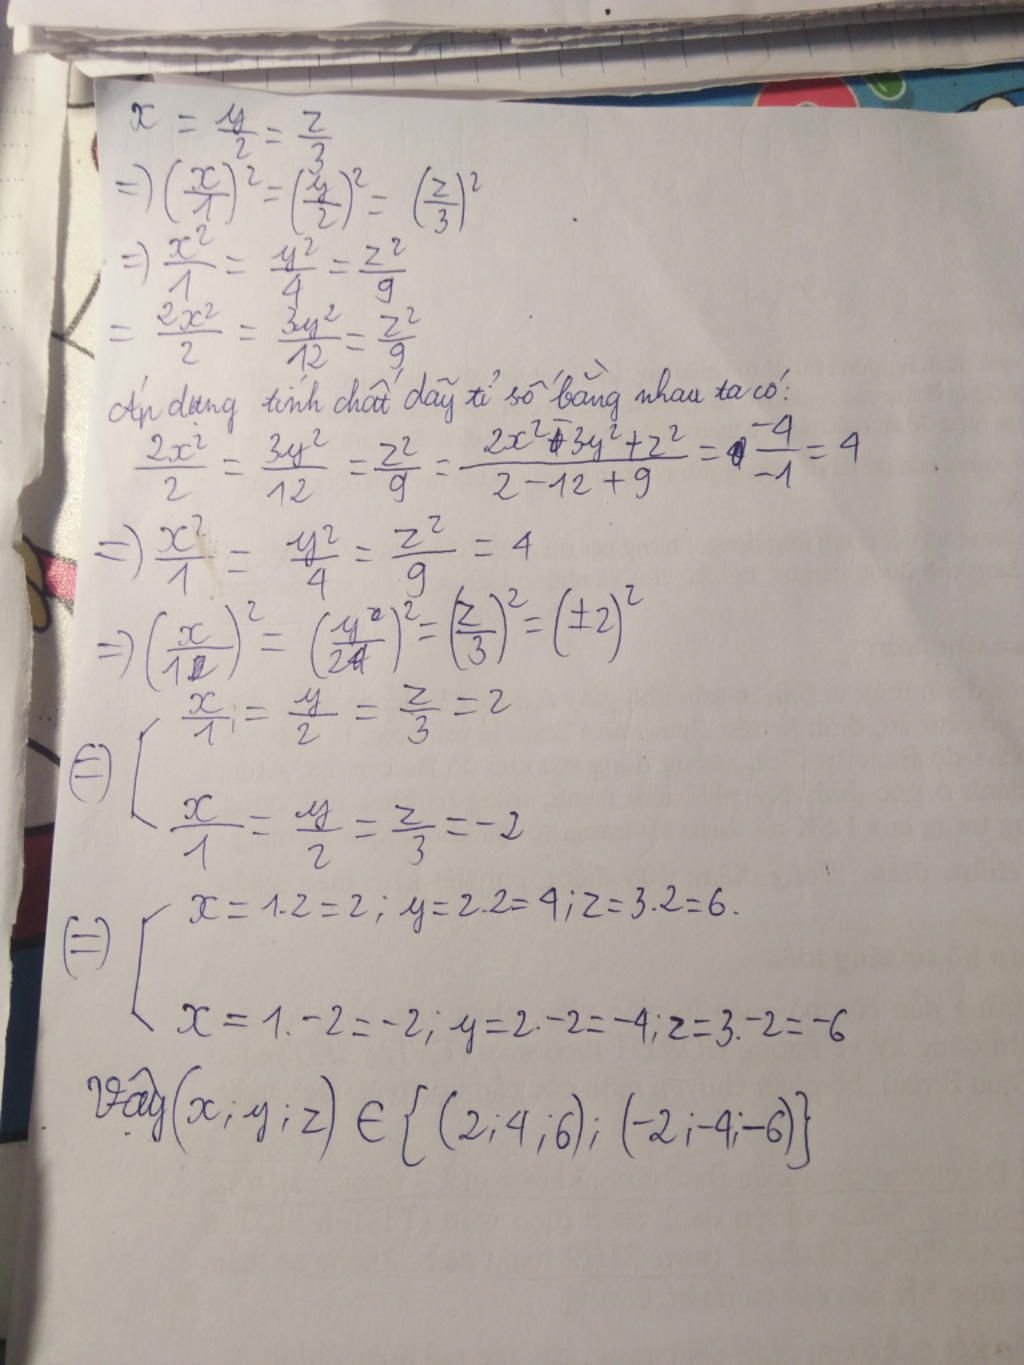 x = y/2 = z/3
=) (x/1)² = (y/2)² = (z/3)²
=) x²/1 = y²/4 = z²/9
= 2x²/2 = 3y²/12 = z²/9
Áp dụng tính chất dãy tỉ số bằng nhau ta có:
2x²/2 = 3y²/12 = z²/9 = (2x² - 3y² + z²)/(2 - 12 + 9) = -4/-1 = 4
=) x²/1 = y²/4 = z²/9 = 4
=) (x/1)² = (y/2)² = (z/3)² = (±2)²
x/1 = y/2 = z/3 = 2
(=)
x/1 = y/2 = z/3 = -2
x = 1.2 = 2; y = 2.2 = 4; z = 3.2 = 6.
(=)
x = 1.-2 = -2; y = 2.-2 = -4; z = 3.-2 = -6
Vậy (x; y; z) ∈ { (2; 4; 6); (-2; -4; -6)}